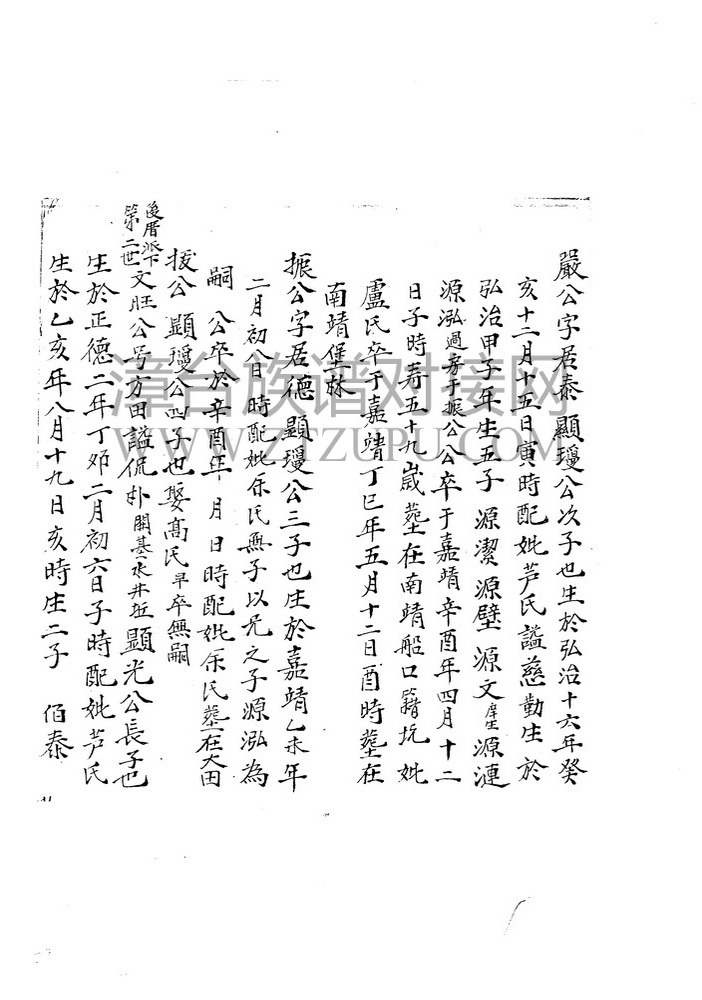 嚴公字居泰顯瓊公次子也生於弘治十六年癸
亥十二月十五日寅時配妣芦氏謚慈勤生於
弘治甲子年生五子 源潔源壁源文 源漣
源泓過房于振公公卒于嘉靖辛酉年四月十二
日子時寿五十九歲葬在南靖船口籍坑妣
盧氏卒于嘉靖丁巳年五月十二日酉時葬在
南靖堡林
振公字居德顯瓊公三子也生於嘉靖乙未年
二月初八日 時配妣余氏無子以兄之子源泓為
嗣 公卒於辛酉年 月 日時配妣余氏葬在大田
拔公顯瓊公四子也娶高氏早卒無嗣
後厝派下
第二世文旺公号方田謚侃朴開基水井 顯光公長子也
生於正德二年丁卯二月初六日子時配妣芦氏
生於乙亥年八月十九日亥時生二子 佰泰
漳台族谱对接网
WWW.ZTZUPU.COM